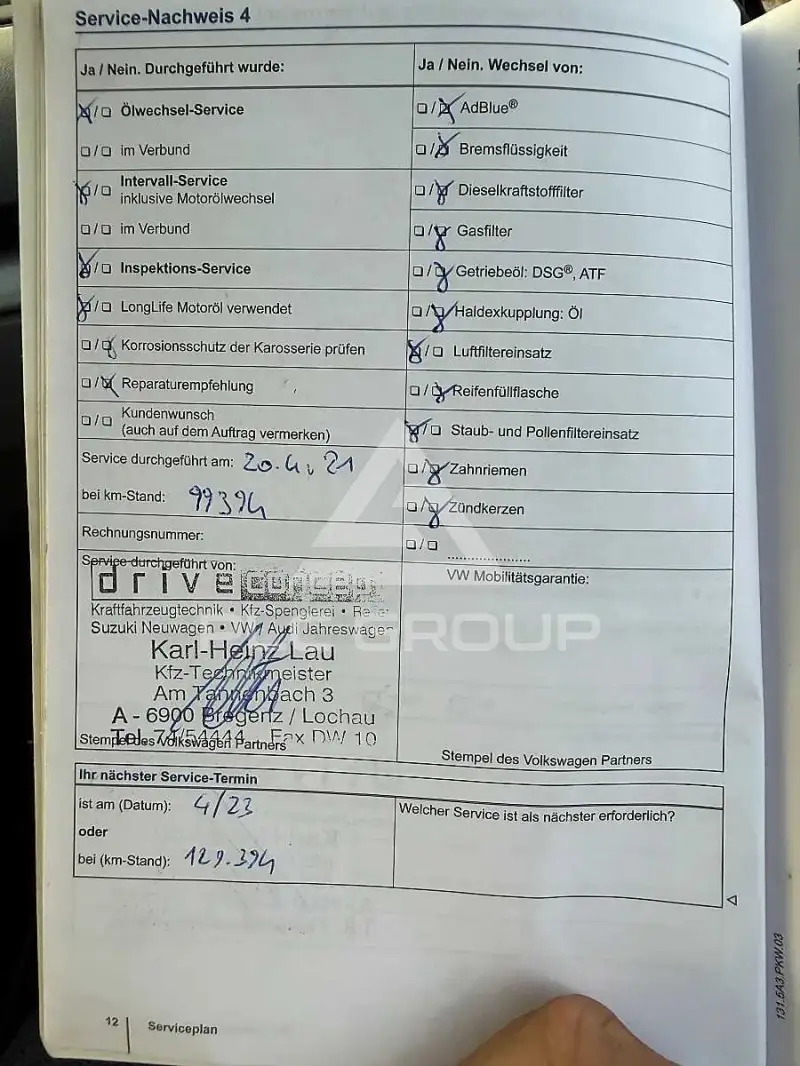 Service-Nachweis 4
Ja / Nein. Durchgeführt wurde:
Ölwechsel-Service
im Verbund
Intervall-Service
inklusive Motorölwechsel
im Verbund
Inspektions-Service
LongLife Motoröl verwendet
Korrosionsschutz der Karosserie prüfen
Reparaturempfehlung
Kundenwunsch
(auch auf dem Auftrag vermerken)
Service durchgeführt am: 20.4.21
bei km-Stand: 99394
Rechnungsnummer:
Service durchgeführt von:
drive concept
Kraftfahrzeugtechnik • Kfz-Spenglerei •
Suzuki Neuwagen • VW / Audi Jahreswagen
Karl-Heinz Lau
Kfz-Technikmeister
Am Tannenbach 3
A - 6900 Bregenz / Lochau
Tel. 74/54444 Fax DW 10
Stempel des Volkswagen Partners
Ja / Nein. Wechsel von:
AdBlue®
Bremsflüssigkeit
Dieselkraftstofffilter
Gasfilter
Getriebeöl: DSG®, ATF
Haldexkupplung: Öl
Luftfiltereinsatz
Reifenfüllflasche
Staub- und Pollenfiltereinsatz
Zahnriemen
Zündkerzen
VW Mobilitätsgarantie:
GROUP
Stempel des Volkswagen Partners
Ihr nächster Service-Termin
ist am (Datum): 4/23
oder
bei (km-Stand): 129.394
Welcher Service ist als nächster erforderlich?
12
Serviceplan
131.5A3.PKW.03